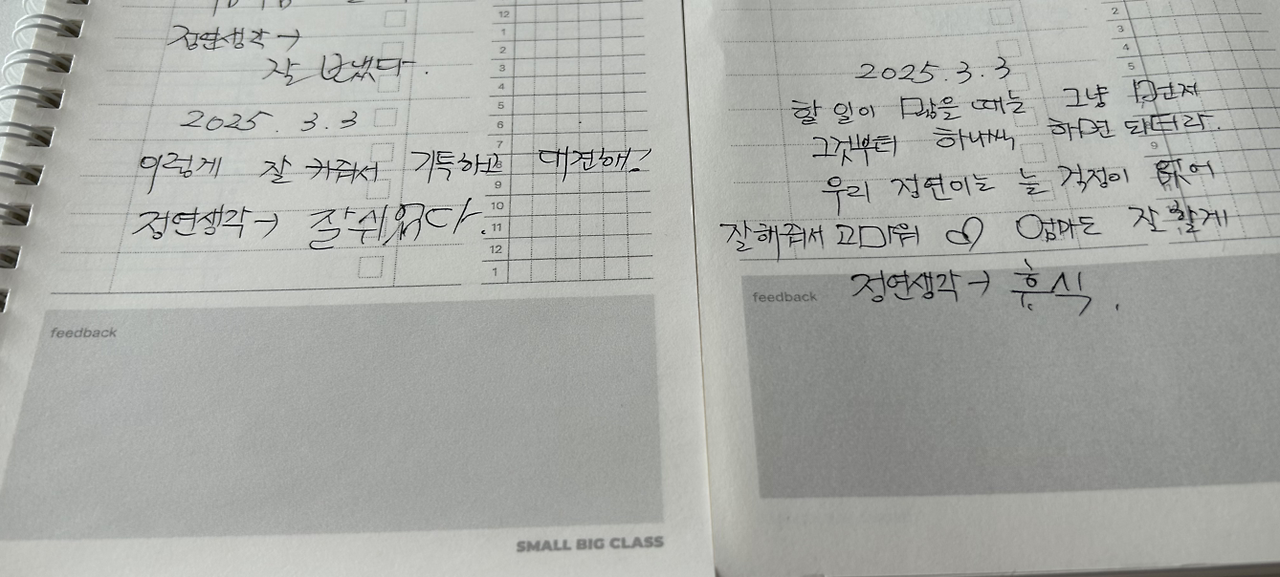 정연생각 →
잘 보냈다.
2025. 3. 3
이렇게 잘 커줘서 기특하고 대견해!
정연생각 → 잘쉬었다.
12
1
2
3
4
5
6
7
8
9
10
11
12
1
feedback
SMALL BIG CLASS
2
3
4
5
2025. 3. 3
할 일이 많을 때는 그냥 먼저
그것부터 하나씩 하면 되더라.
9
우리 정연이는 늘 걱정이 없어
잘해줘서 고마워 엄마도 잘 할게
feedback
정연생각 → 휴식.